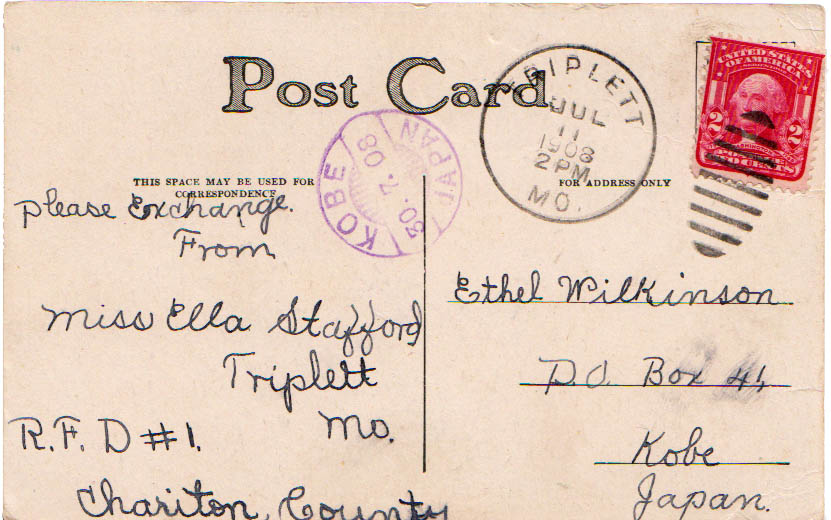 Post Card
THIS SPACE MAY BE USED FOR
CORRESPONDENCE
FOR ADDRESS ONLY
TRIPLETT
JUL
11
1908
2PM
MO.
KOBE
30.7.08
JAPAN
UNITED STATES
OF AMERICA
2 2
POSTAGE
TWO CENTS
please Exchange.
From
Miss Ella Stafford
Triplett
Mo.
R.F.D #1.
Chariton, County
Ethel Wilkinson
P.O. Box 41
Kobe
Japan.